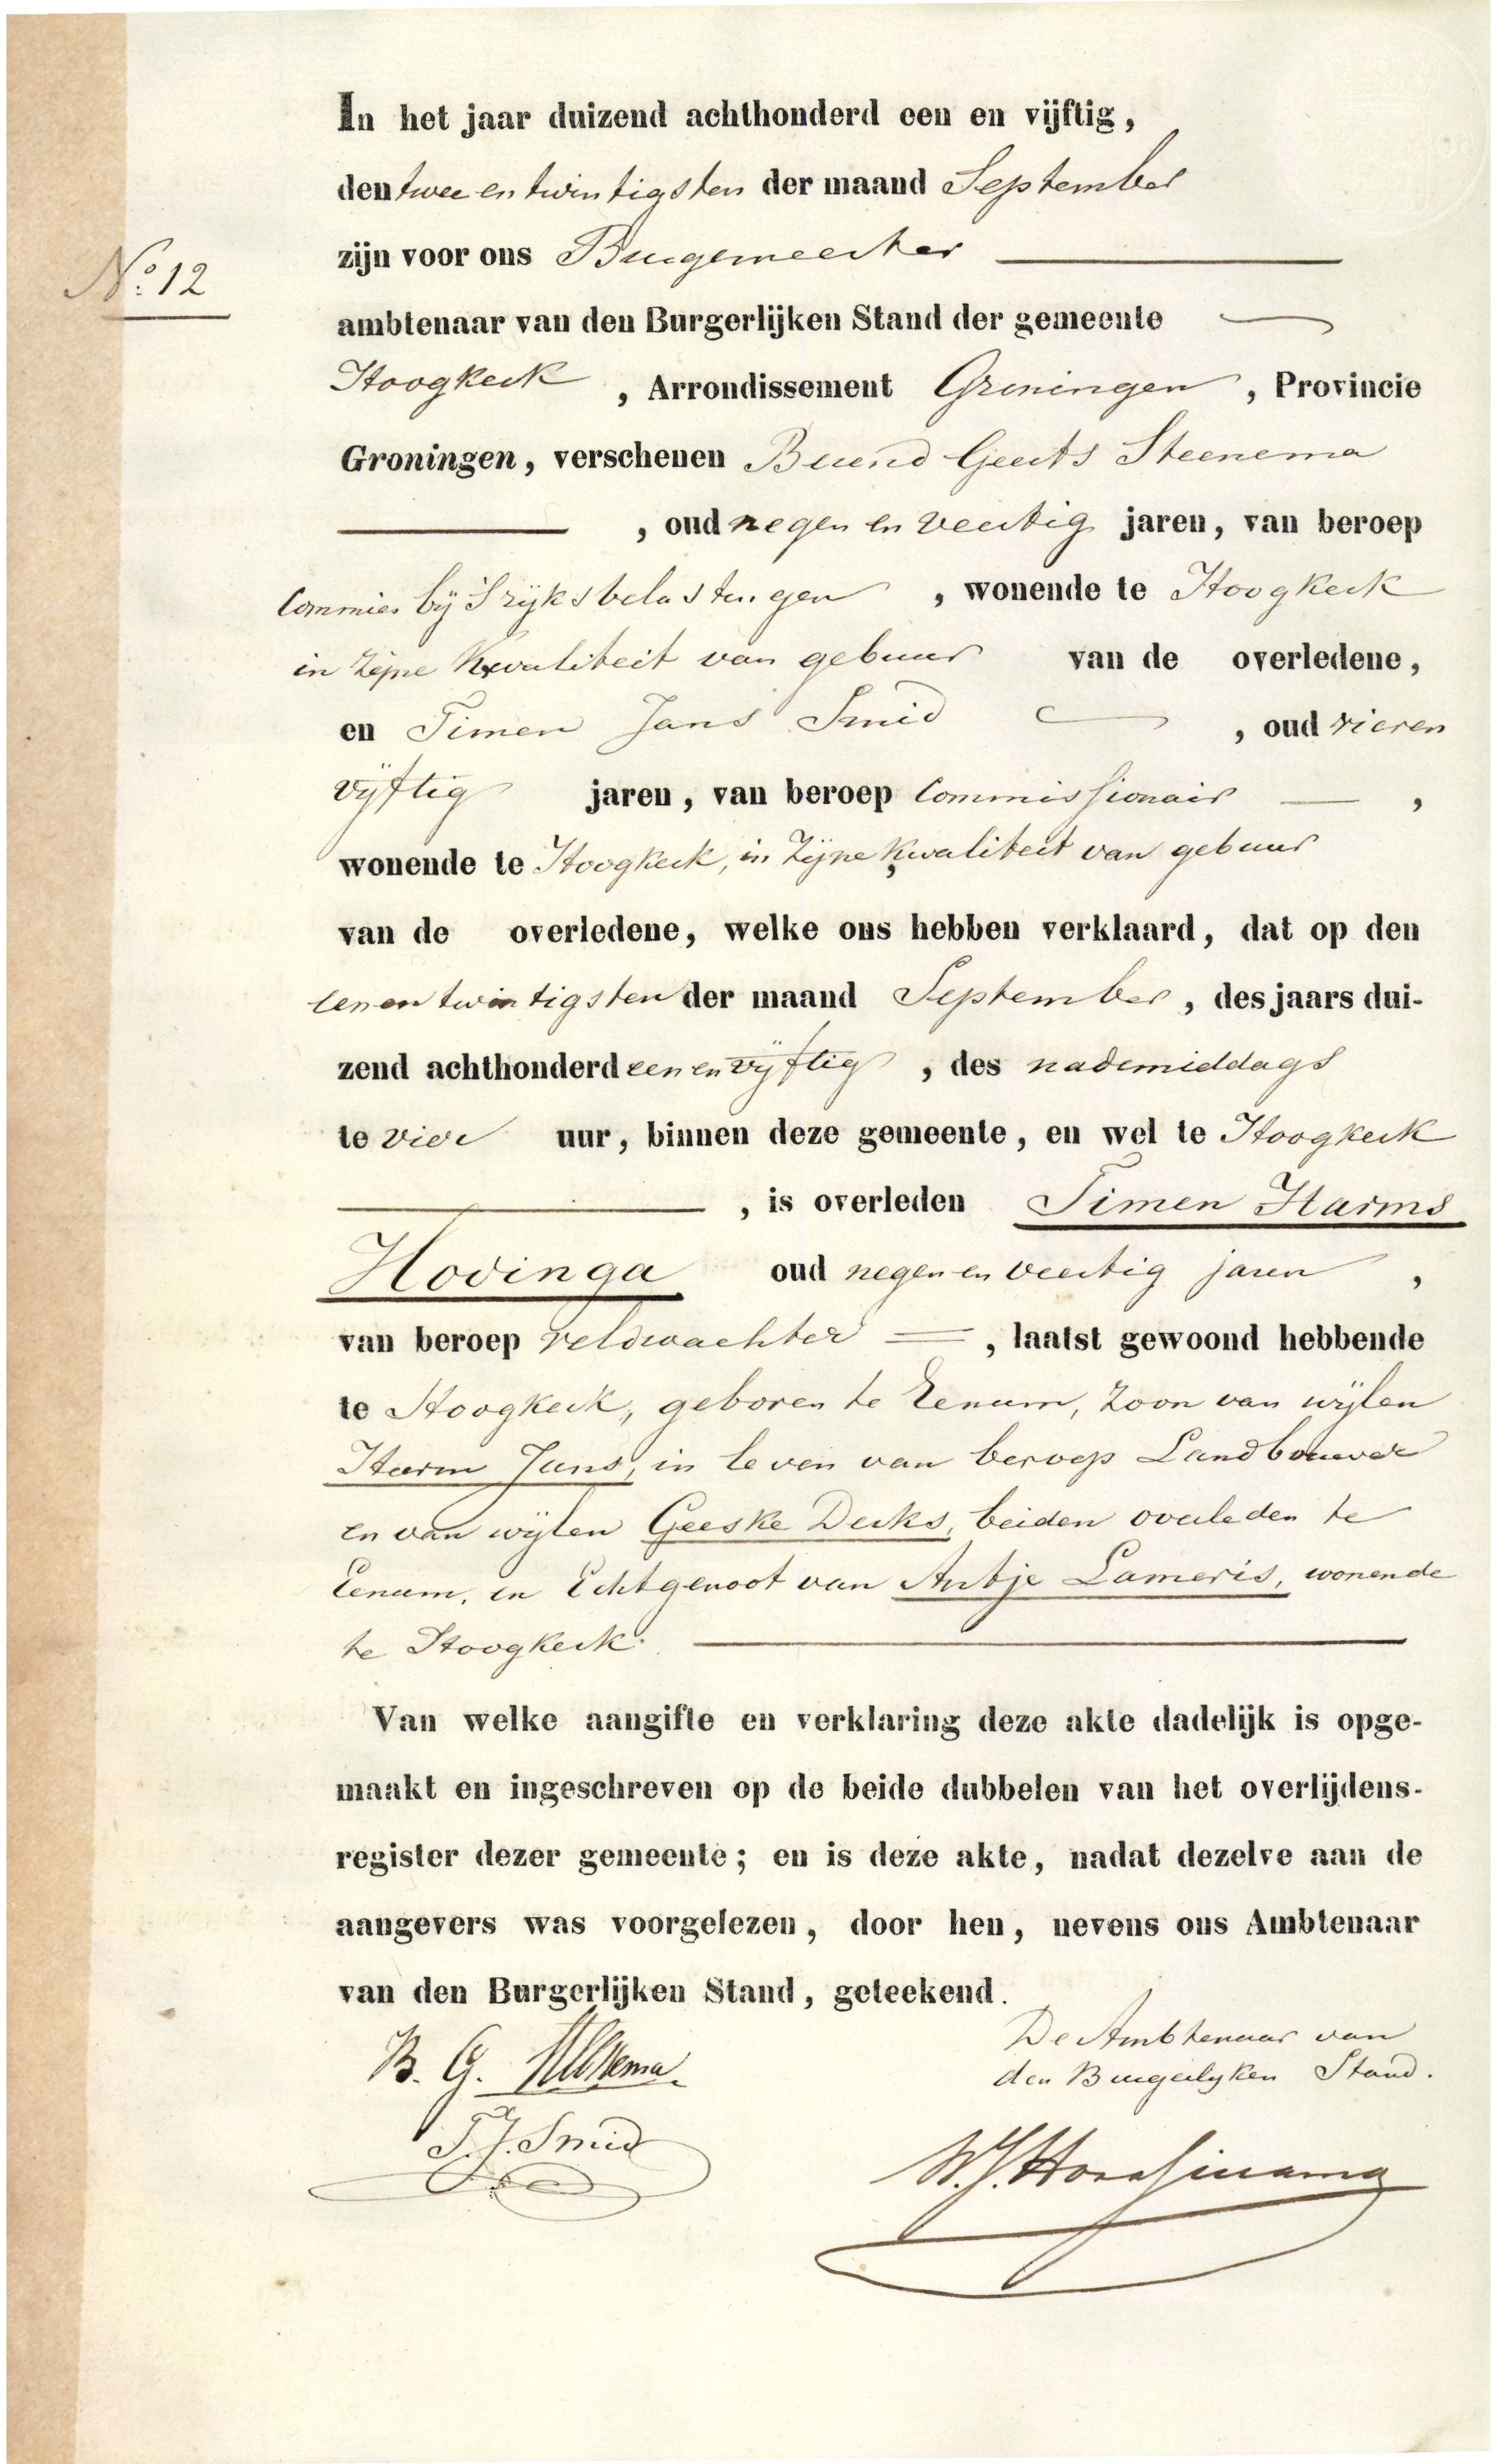 In het jaar duizend achthonderd een en vijftig,
den twee en twintigsten der maand September
zijn voor ons Burgemeester
No. 12
ambtenaar van den Burgerlijken Stand der gemeente
Hoogkerk, Arrondissement Groningen, Provincie
Groningen, verschenen Berend Geerts Steenema
, oud negen en veertig jaren, van beroep
Commies bij 's rijks belastingen, wonende te Hoogkerk
in zijne kwaliteit van gebuur van de overledene,
en Timen Jans Smid, oud vier en
vijftig jaren, van beroep Commissionair,
wonende te Hoogkerk, in zijne kwaliteit van gebuur
van de overledene, welke ons hebben verklaard, dat op den
een en twintigsten der maand September, des jaars dui-
zend achthonderd een en vijftig, des nademiddags
te vier uur, binnen deze gemeente, en wel te Hoogkerk
, is overleden Timen Harms
Hovinga oud negen en veertig jaren,
van beroep veldwachter, laatst gewoond hebbende
te Hoogkerk, geboren te Eenum, zoon van wijlen
Harm Jans, in leven van beroep Landbouwer
en van wijlen Geeske Derks, beiden overleden te
Eenum, en Echtgenoot van Antje Lameris, wonende
te Hoogkerk.
Van welke aangifte en verklaring deze akte dadelijk is opge-
maakt en ingeschreven op de beide dubbelen van het overlijdens-
register dezer gemeente; en is deze akte, nadat dezelve aan de
aangevers was voorgelezen, door hen, nevens ons Ambtenaar
van den Burgerlijken Stand, geteekend.
De Ambtenaar van
den Burgerlyken Stand.
B. G. Steenema
T. J. Smid
W. J.